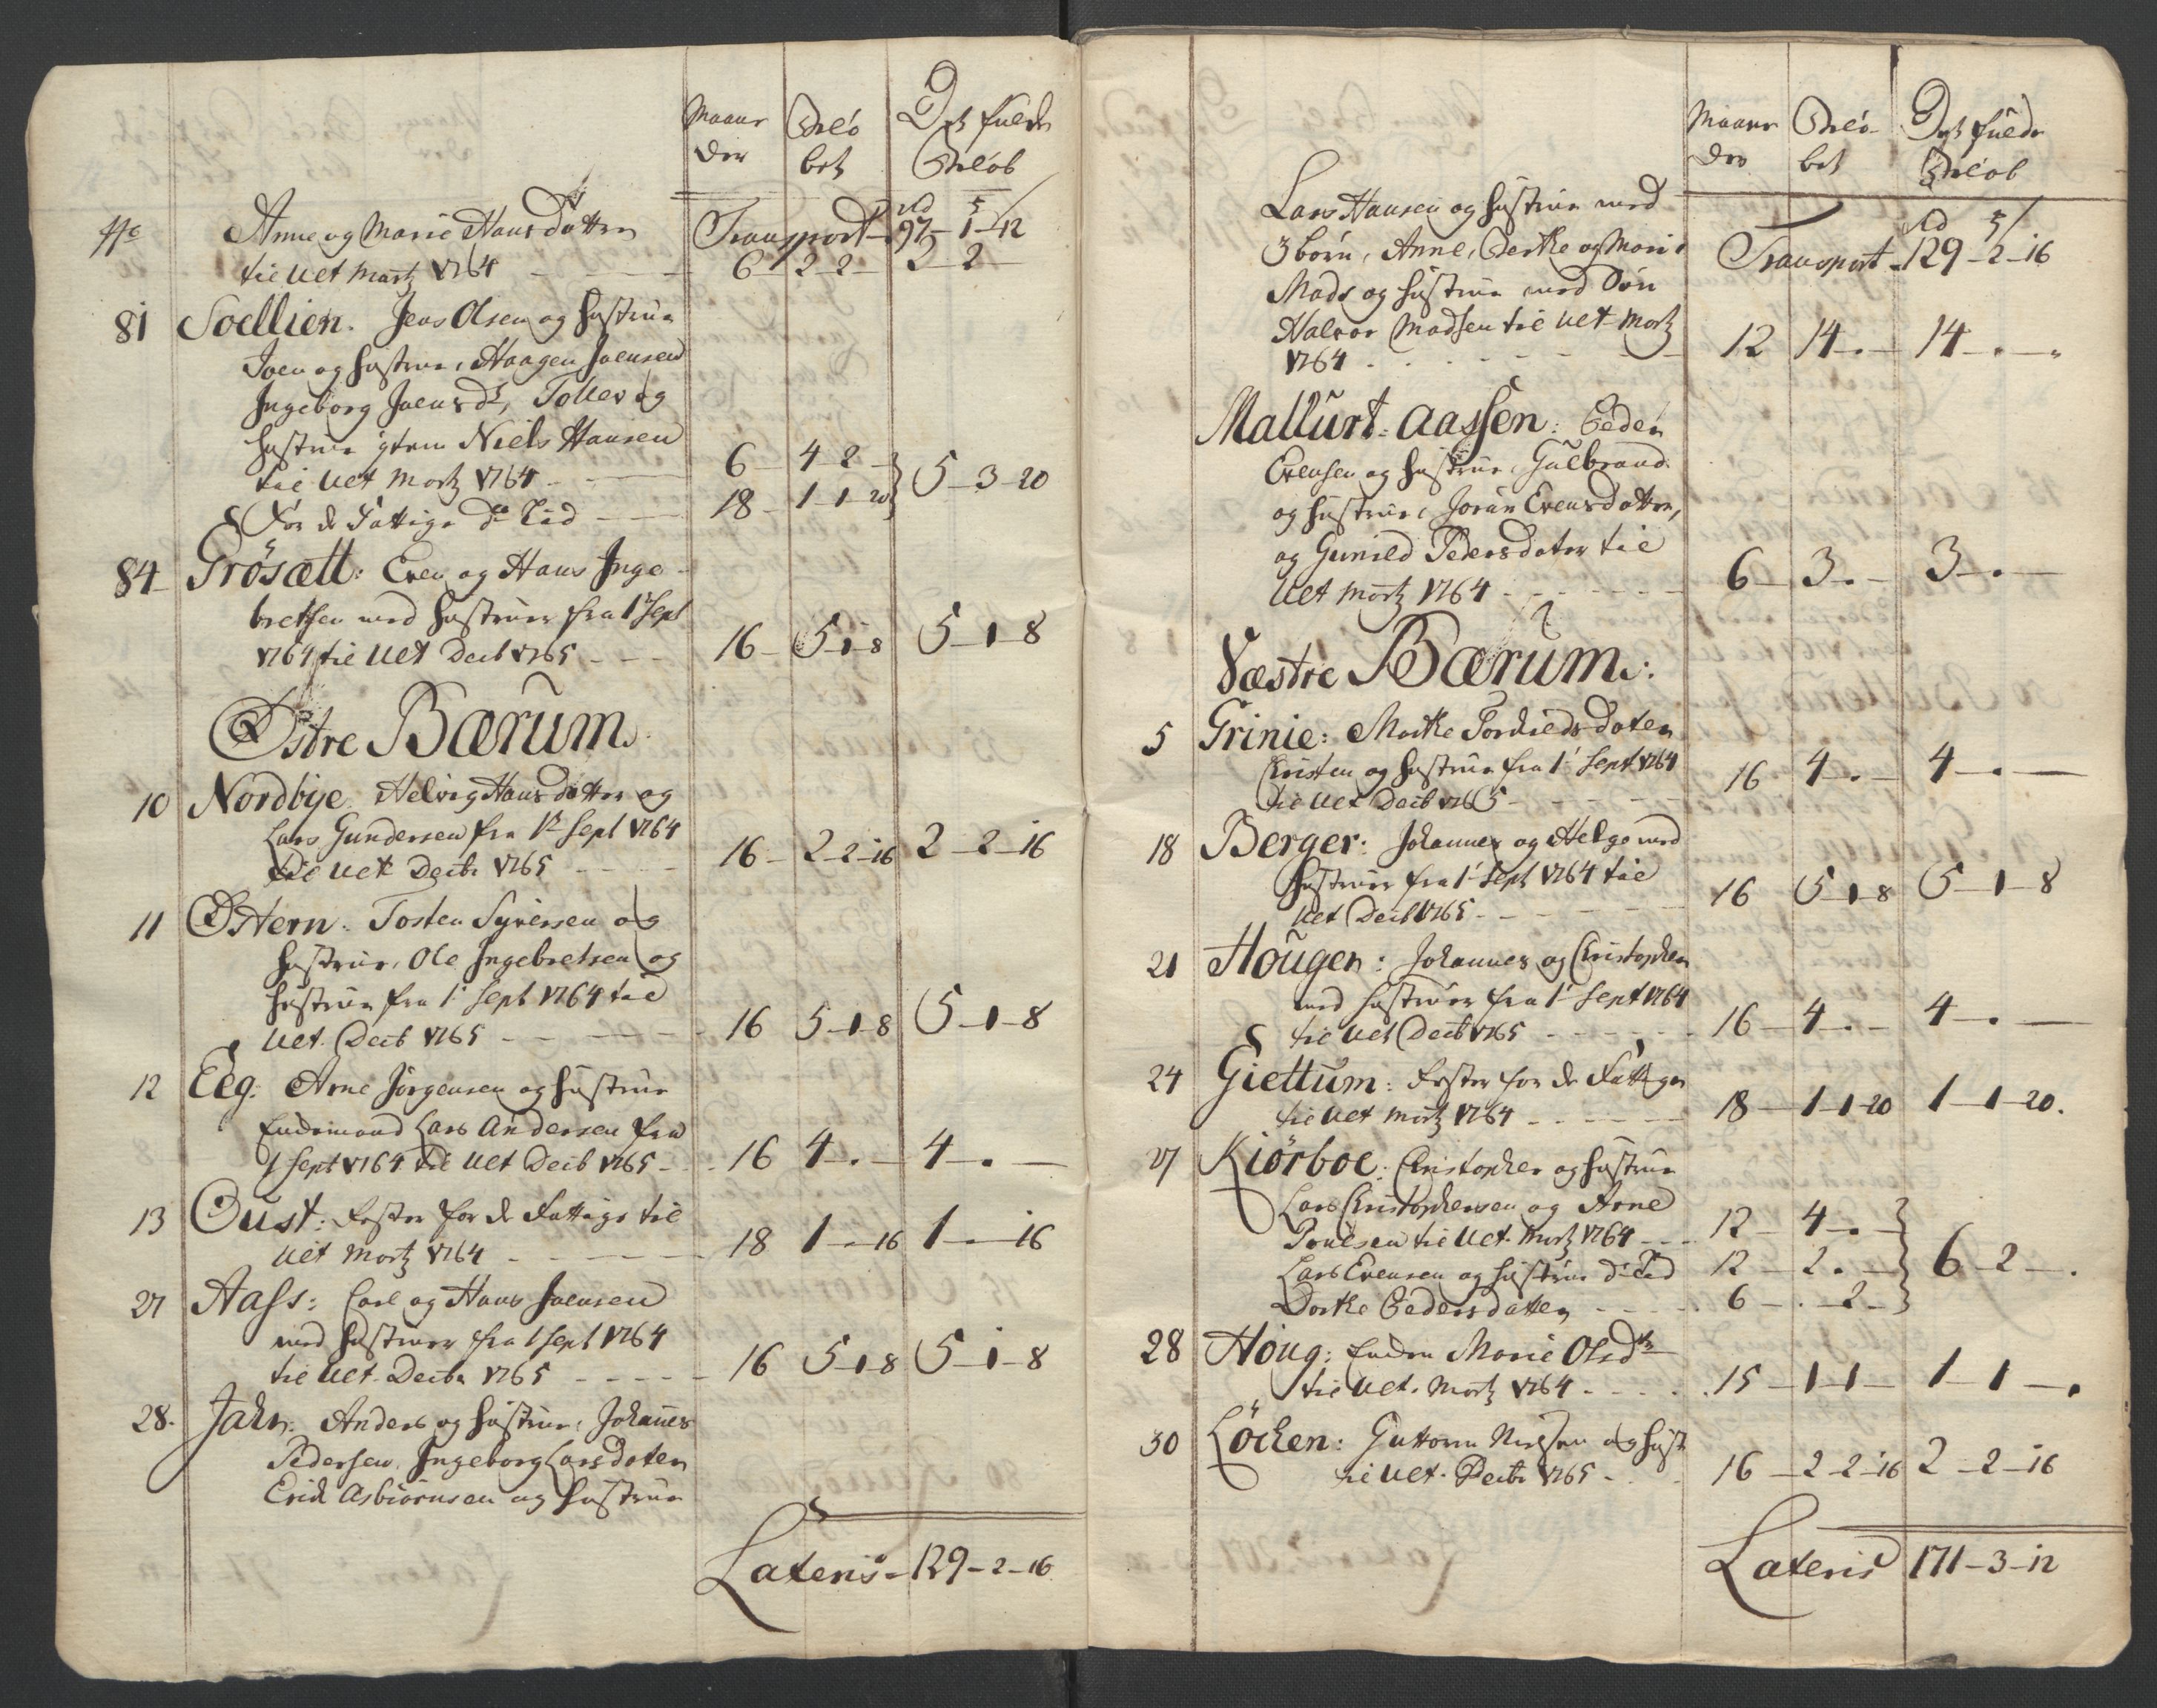 Maane Belö Det fulde
der bet Belöb
Rd
Anne og Marie Hansdatter Transport 97-1-12
til Ult Martz 1764 - - - - 6 2-2- 2-2-
81 Soellien. Jens Olsen og Hustrue
Joen og Hustrue, Haagen Joensen
Ingeborg Joensdr, Tollev og
Hustrue Niels Hansen
til Ult Martz 1764 - - - 6 4-2-
For de Fattige do Tid - - 18 1-1-20 5-3-20
84 Grösætt: Even og Hans Inge-
bretsen med Hustruer fra 1 Sept
1764 til Ult Decb 1765 - - - 16 5-1-8 5-1-8
Østre Bærum.
10 Nordbye. Helvig Hansdatter og
Lars Gundersen fra 1 Sept 1764
til Ult Decbr 1765 - - - - 16 2-2-16 2-2-16
11 Østern. Tosten Syversen og
Hustrue, Ole Ingebretsen og
Hustrue fra 1 Sept 1764 til
Ult. Decb 1765 - - - - - 16 5-1-8 5-1-8
12 Eeg. Arne Jörgensen og Hustrue
Lars Andersen fra
1 Sept 1764 til Ult Decb 1765 - 16 4-.- 4-.-
13 Oust: Rester for de Fattige til
Ult Martz 1764 - - - - - 18 1-.-16 1-.-16
27 Aass: Carl og Hans Joensen
med Hustruer fra 1 Sept 1764
til Ult. Decbr 1765 - - - - - 16 5-1-8 5-1-8
28. Jahr. Anders og Hustrue, Johanes
Pedersen, Ingeborg Larsdater
Erich Asbiörnsen og Hustrue
Lateris - 129-2-16
Maane Belö- Det fulde
der bet Belöb
Lars Hansen og Hustrue med Rd
3 börn, Anne, Berthe og Marie Transport - 129-2-16
Mads og Hustrue med Sön
Halvor Madsen til Ult Martz
1764 - - - - - - 12 14-.- 14-.-
Mallurt-aassen: Peder
Evensen og Hustrue, Gulbrand
og Hustrue, Joran Evensdatter,
og Gunild Pedersdater til
Ult Martz 1764 - - - - - - 6 3-.- 3-.-
Væstre Bærum:
5 Grinie: Marthe Torkieldsdater
Christen og Hustrue fra 1 Sept 1764
til Ult Decb 1765 - - - - - 16 4-.- 4-.-
18 Berger: Johannes og Helge med
Hustruer fra 1 Sept 1764 til
Ult Decb 1765 - - - - - 16 5-1-8 5-1-8
21 Hougen: Johannes og Christopher
med Hustruer fra 1 Sept 1764
til Ult Decb 1765 - - - - - 16 4-.- 4-.-
24 Giettum: Rester for de Fattige
til Ult Martz 1764 - - - - 18 1-1-20 1-1-20.
27 Kiörboe: Christopher og Hustrue
Lars Christophersen og Arne
Poulsen til Ult. Martz 1764 - - 12 4-.-
Lars Evensen og Hustrue do Tid 12 2.- 6-2-.
Dorthe Pedersdatter - - - - 6 .-2-
28 Houg: Enken Marie Olsdtr
til Ult. Martz 1764 - - - - 15 1-1- 1-1-.
30 Löcken: Guttorm Nielsen og Hust
til Ult. Decbr 1765 - - 16 2-2-16 2-2-16
Lateris 171-3-12